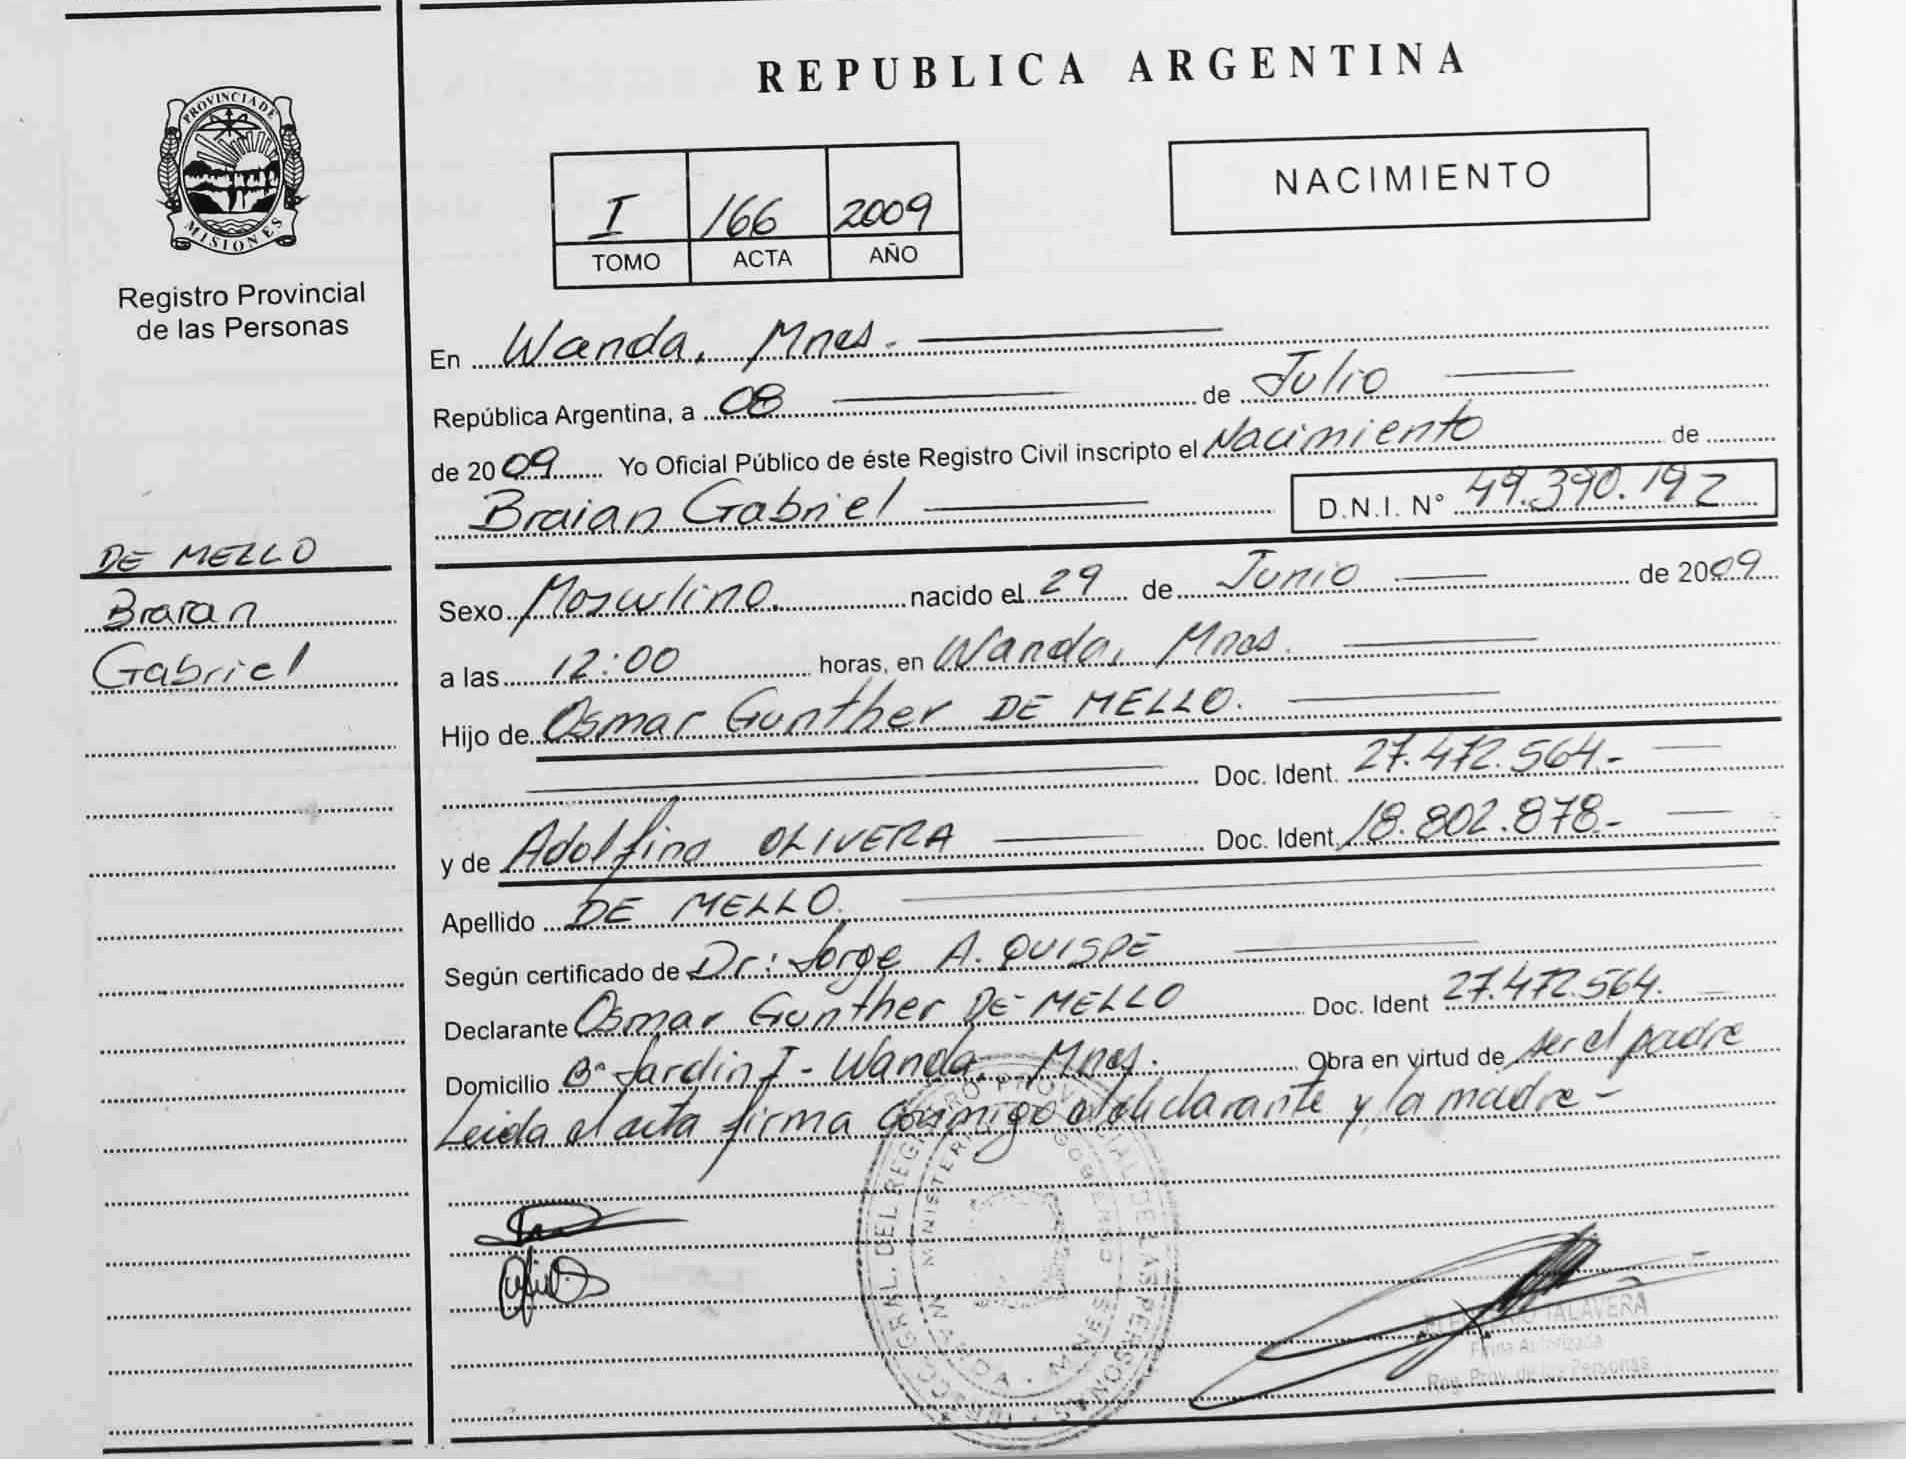 REPUBLICA ARGENTINA
PROVINCIA DE
MISIONES
Registro Provincial
de las Personas
NACIMIENTO
I 166 2009
TOMO ACTA AÑO
En Wanda, Mnes.
República Argentina, a 08 de Julio
de 2009 Yo Oficial Público de éste Registro Civil inscripto el Nacimiento de
Braian Gabriel D.N.I. N° 49.390.192
DE MELLO
Braian
Gabriel
Sexo Masculino. nacido el 29 de Junio de 2009
a las 12:00 horas, en Wanda, Mnes.
Hijo de Osmar Gunther DE MELLO.
Doc. Ident. 27.472.564.-
y de Adolfina OLIVERA Doc. Ident. 18.802.878-
Apellido DE MELLO.
Según certificado de Dr: Jorge A. QUISPE
Declarante Osmar Gunther DE MELLO Doc. Ident 27.472.564.
Domicilio B° Jardin I - Wanda, Mnes. Obra en virtud de ser el padre
Leida el acta firma conmigo el declarante y la madre -
GRAL. DEL REGISTRO PROVINCIAL DE LAS PERSONAS
MINISTERIO GOBIERNO
MNES
TALAVERA
Firma Autorizada
Reg. Prov. de las Personas